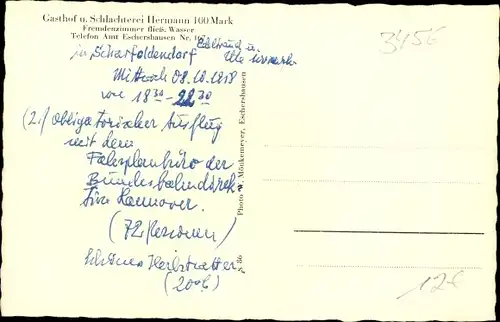 Gasthof u. Schlachterei Hermann 100 Mark
Fremdenzimmer fließ. Wasser
Telefon Amt Eschershausen Nr.
in Scharfoldendorf
Mittwoch 08.10.
von 18³⁰-22³⁰
(2.) obligatorischer Ausflug
mit dem
Fahrplanbüro der
Bundesbahndirek-
tion Hannover.
(72 Personen)
Schönes Herbstwetter
(20°C)
Photo W. Mönkemeyer, Eschershausen
345€
12€